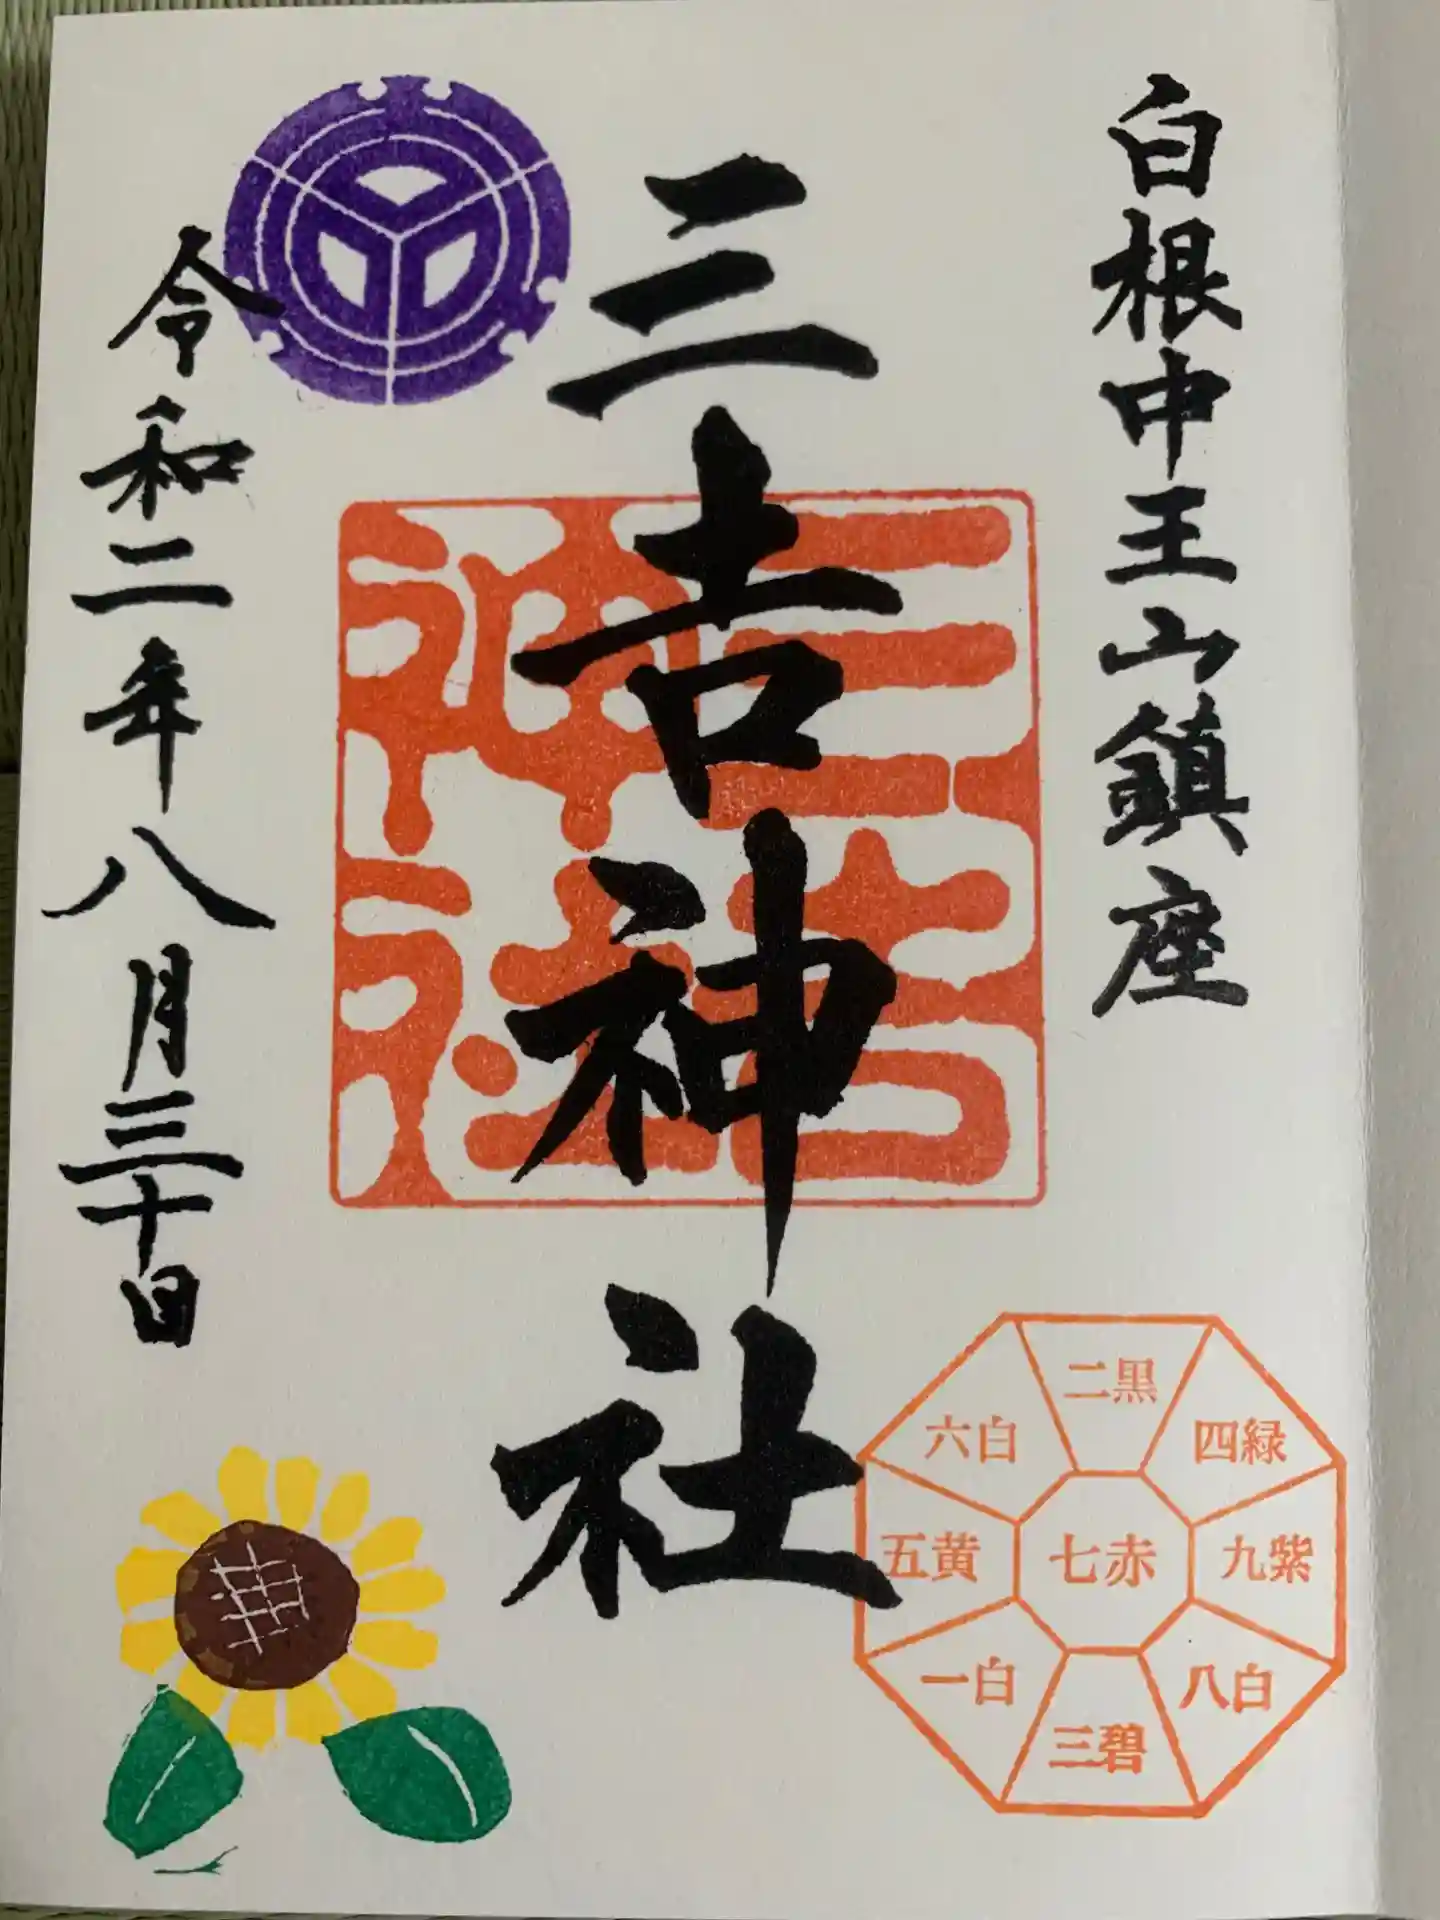 白根中王山鎮座
三吉神社
三吉
神社
令和二年八月三十日
二黒
六白
四緑
五黄
七赤
九紫
一白
八白
三碧